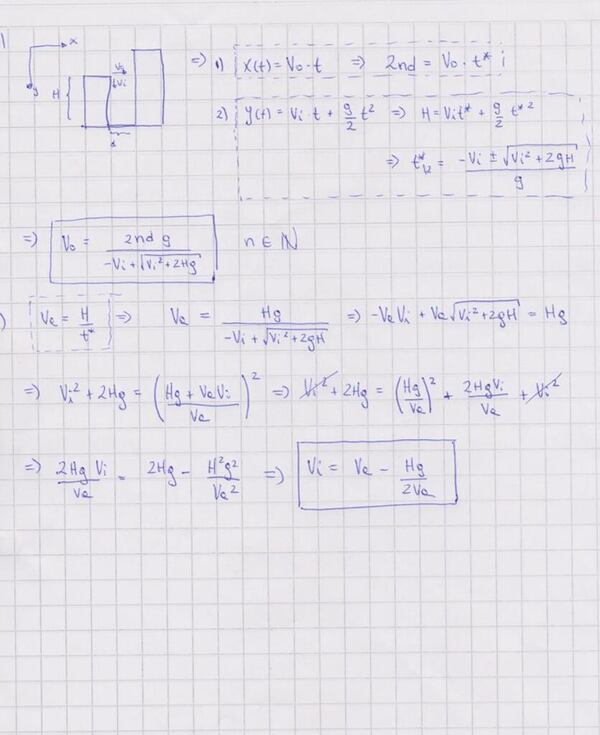 1
x
y
H
d
V₀
Vi
=> 1) x(t) = V₀ · t => 2nd = V₀ · t* ;
2) y(t) = Vi · t + g/2 t² => H = Vit* + g/2 t*²
=> t*₁,₂ = (-Vi ± √(Vi² + 2gH)) / g
=> V₀ = 2nd g / (-Vi + √(Vi² + 2Hg)) n ∈ ℕ
) Ve = H / t* => Ve = Hg / (-Vi + √(Vi² + 2gH)) => -VeVi + Ve√(Vi² + 2gH) = Hg
=> Vi² + 2Hg = ((Hg + VeVi) / Ve)² => Vi² + 2Hg = (Hg / Ve)² + 2HgVi / Ve + Vi²
=> 2Hg Vi / Ve = 2Hg - H²g² / Ve² => Vi = Ve - Hg / 2Ve